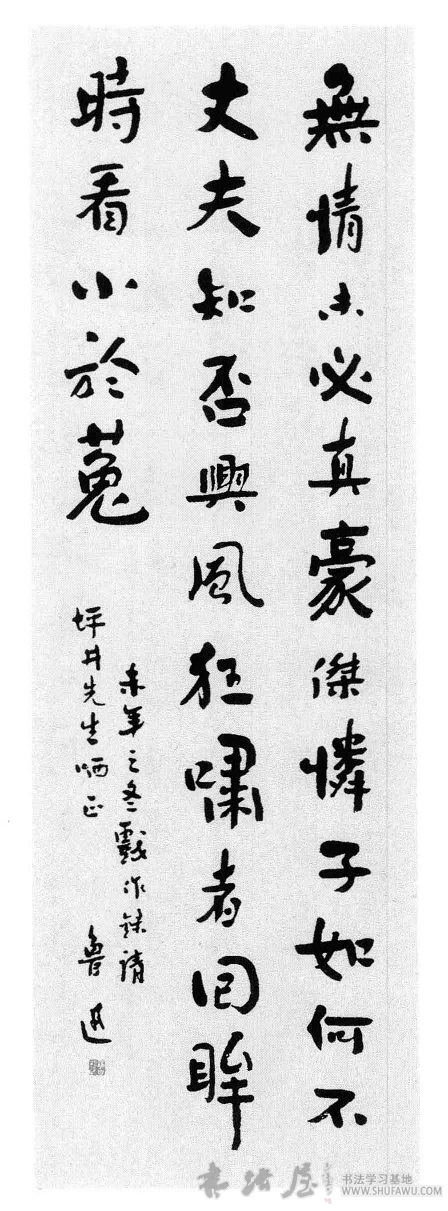 無情未必真豪傑憐子如何不
丈夫知否興風狂嘯者回眸
時看小於菟
未年之冬戲作錄請
坪井先生哂正
魯迅
书法屋
书法学习基地
WWW.SHUFAWU.COM